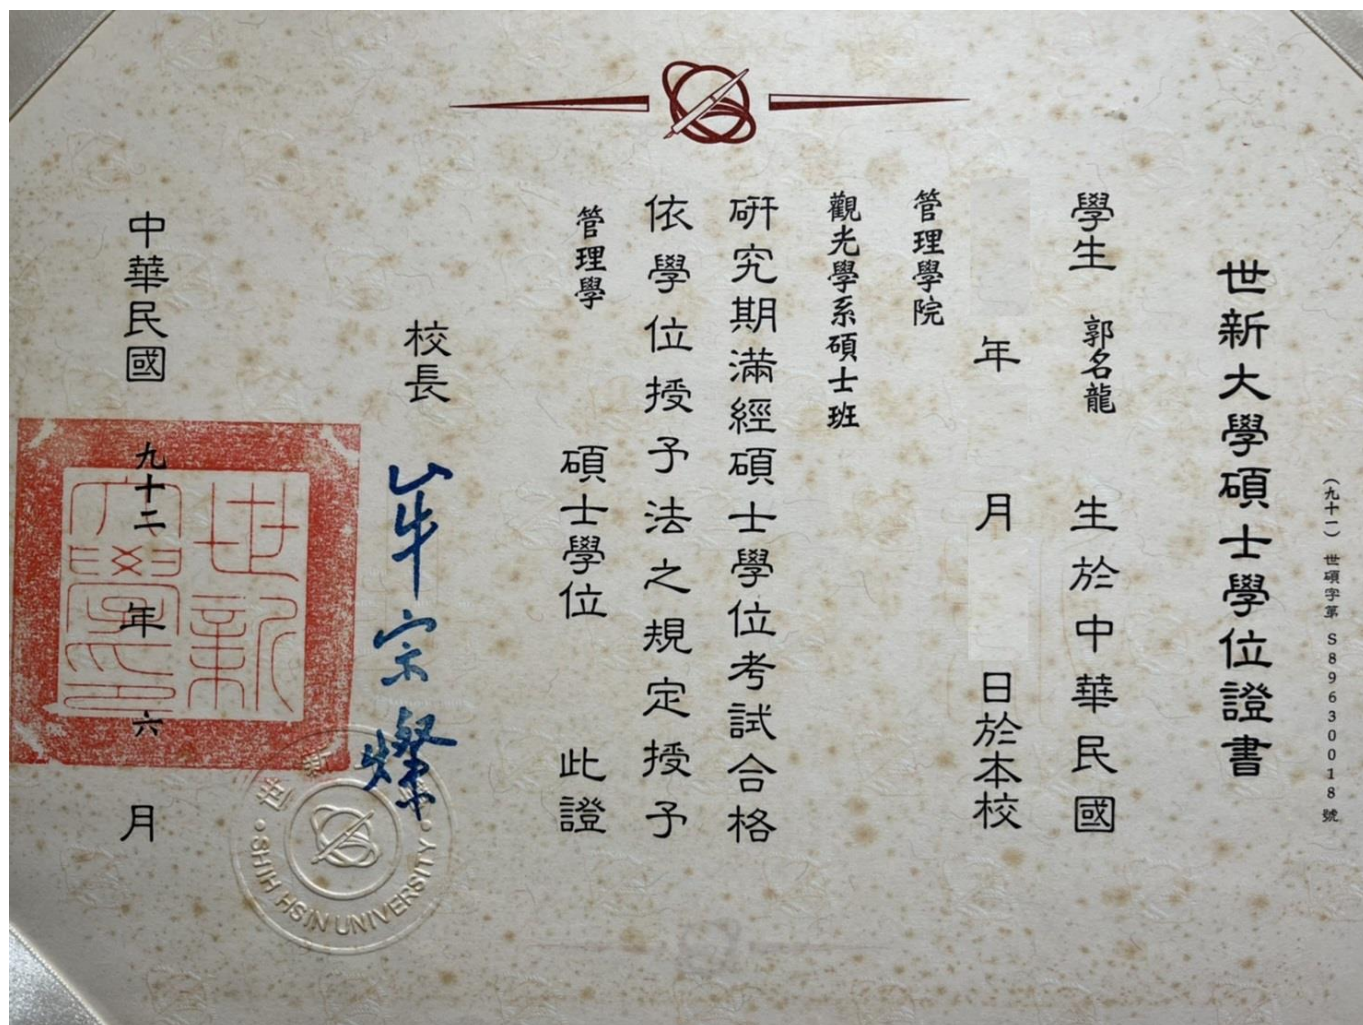 (九十一) 世碩字第 S89630018 號
世新大學碩士學位證書
學生 郭名龍 生於中華民國
年 月 日於本校
管理學院
觀光學系碩士班
研究期滿經碩士學位考試合格
依學位授予法之規定授予
管理學 碩士學位 此證
校長 牟宗燦
中華民國 九十二 年 六 月
世新大學之印
世新大學
SHIH HSIN UNIVERSITY